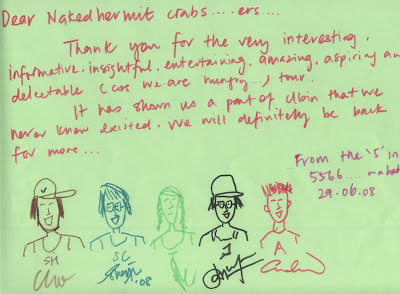 Dear Naked hermit crabs....ers....
Thank you for the very interesting,
informative, insightful, entertaining, amazing, aspiring an
delectable (cos we are hungry...) tour.
It has shown us a part of Ubin that we
never knew existed. We will definitely be back
for more...
From the '5' in
5566....
29.06.08
SH
SC
.08
J
A